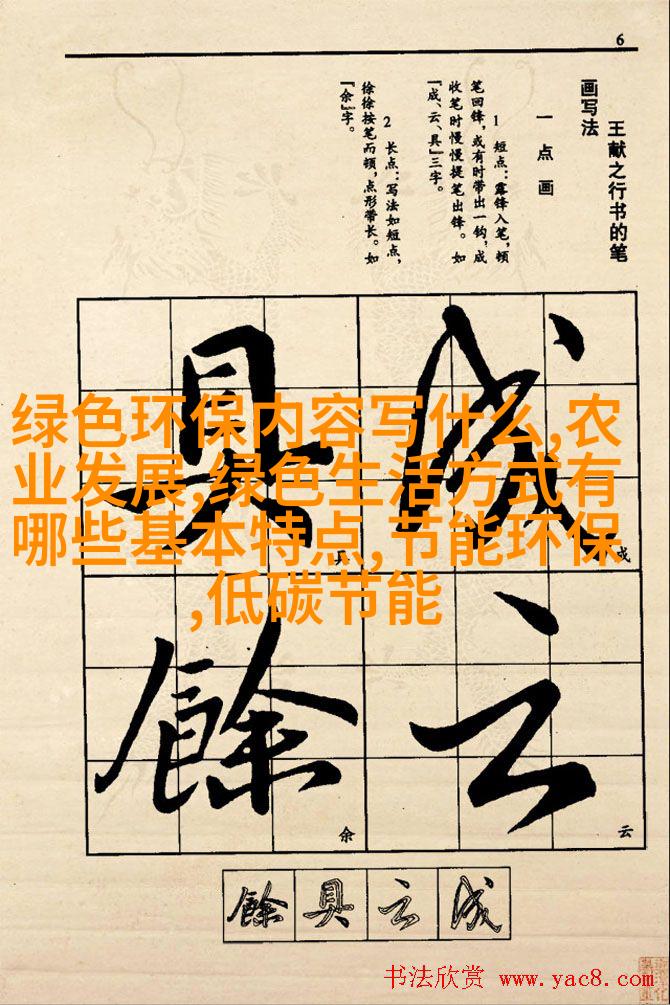 6
王献之行书的笔
画写法
一 点 画
1 短点：露锋入笔，顿
笔回锋，或有时带出一钩，成
收笔时慢慢提笔出锋。如
「成、云、具」三字。
2 长点：写法如短点，
徐徐按笔而顿，点形带长。如
「余」字。
成
具
成
具
绿色环保内容写什么,农
业发展,绿色生活方式有
哪些基本特点,节能环保
,低碳节能
云
餘
云
余
餘具云成
书法欣赏 www.yac8.com